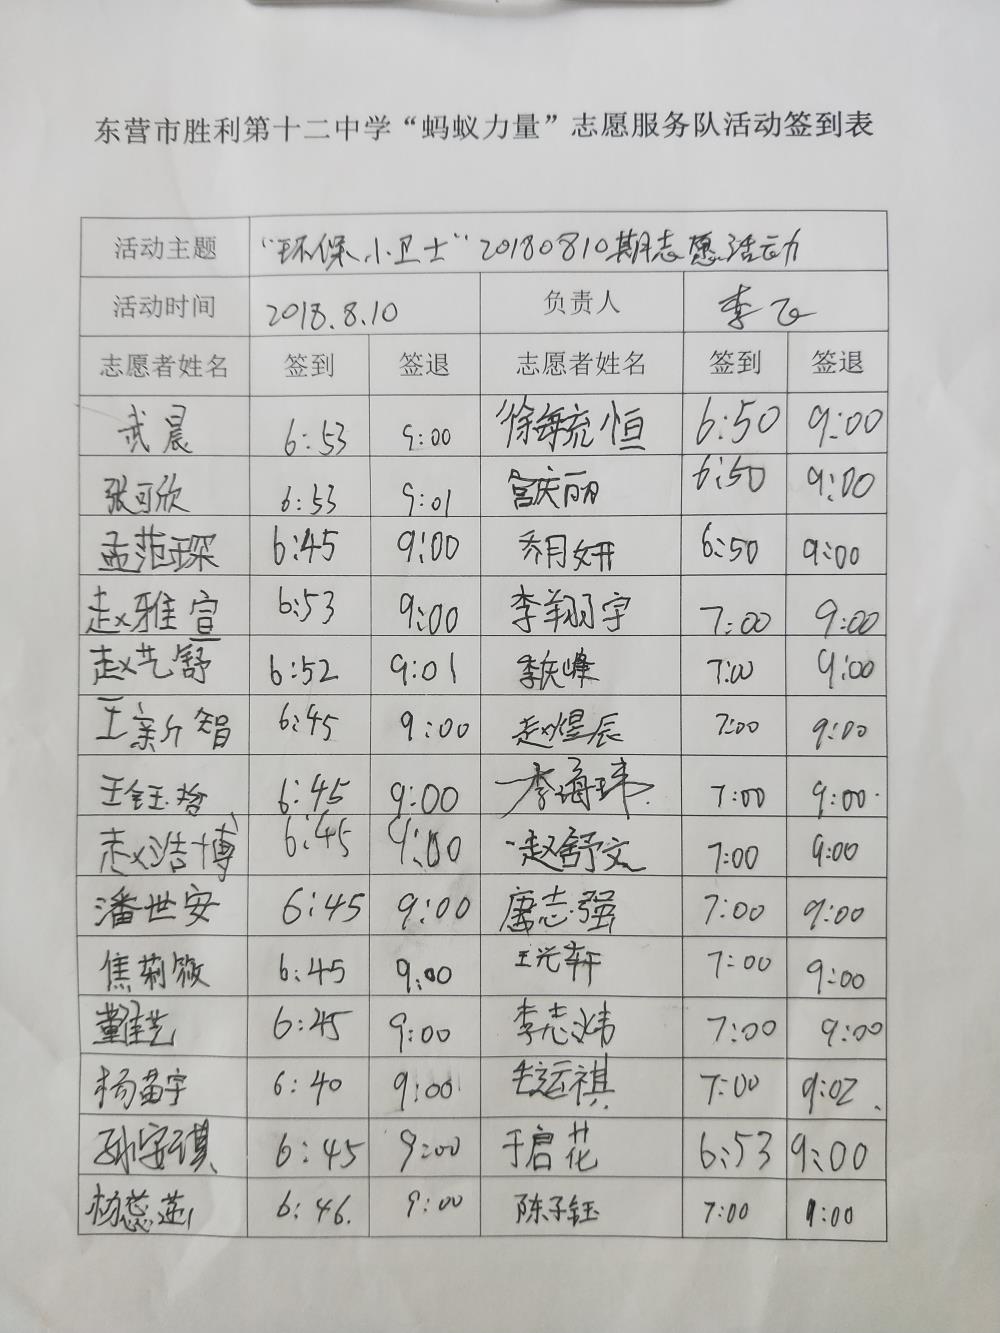 东营市胜利第十二中学“蚂蚁力量”志愿服务队活动签到表
活动主题 “环保小卫士”20180810期志愿活动
活动时间 2018.8.10 负责人 李飞
志愿者姓名 签到 签退 志愿者姓名 签到 签退
武晨 6:53 9:00 徐海恒 6:50 9:00
张可欣 6:53 9:01 宫庆丽 6:50 9:00
孟范琛 6:45 9:00 乔月妍 6:50 9:00
赵雅宣 6:53 9:00 李翔宇 7:00 9:00
赵艺舒 6:52 9:01 李庆峰 7:00 9:00
王新智 6:45 9:00 赵煜辰 7:00 9:00
王钰 6:45 9:00 李海玮 7:00 9:00
赵浩博 6:45 9:00 赵舒文 7:00 9:00
潘世安 6:45 9:00 唐志强 7:00 9:00
焦莉筱 6:45 9:00 王光轩 7:00 9:00
董佳艺 6:45 9:00 李志 7:00 9:00
杨苗宇 6:40 9:00 运祺 7:00 9:02
孙安琪 6:45 9:00 于启花 6:53 9:00
杨蕊莲 6:46 9:00 陈子钰 7:00 9:00